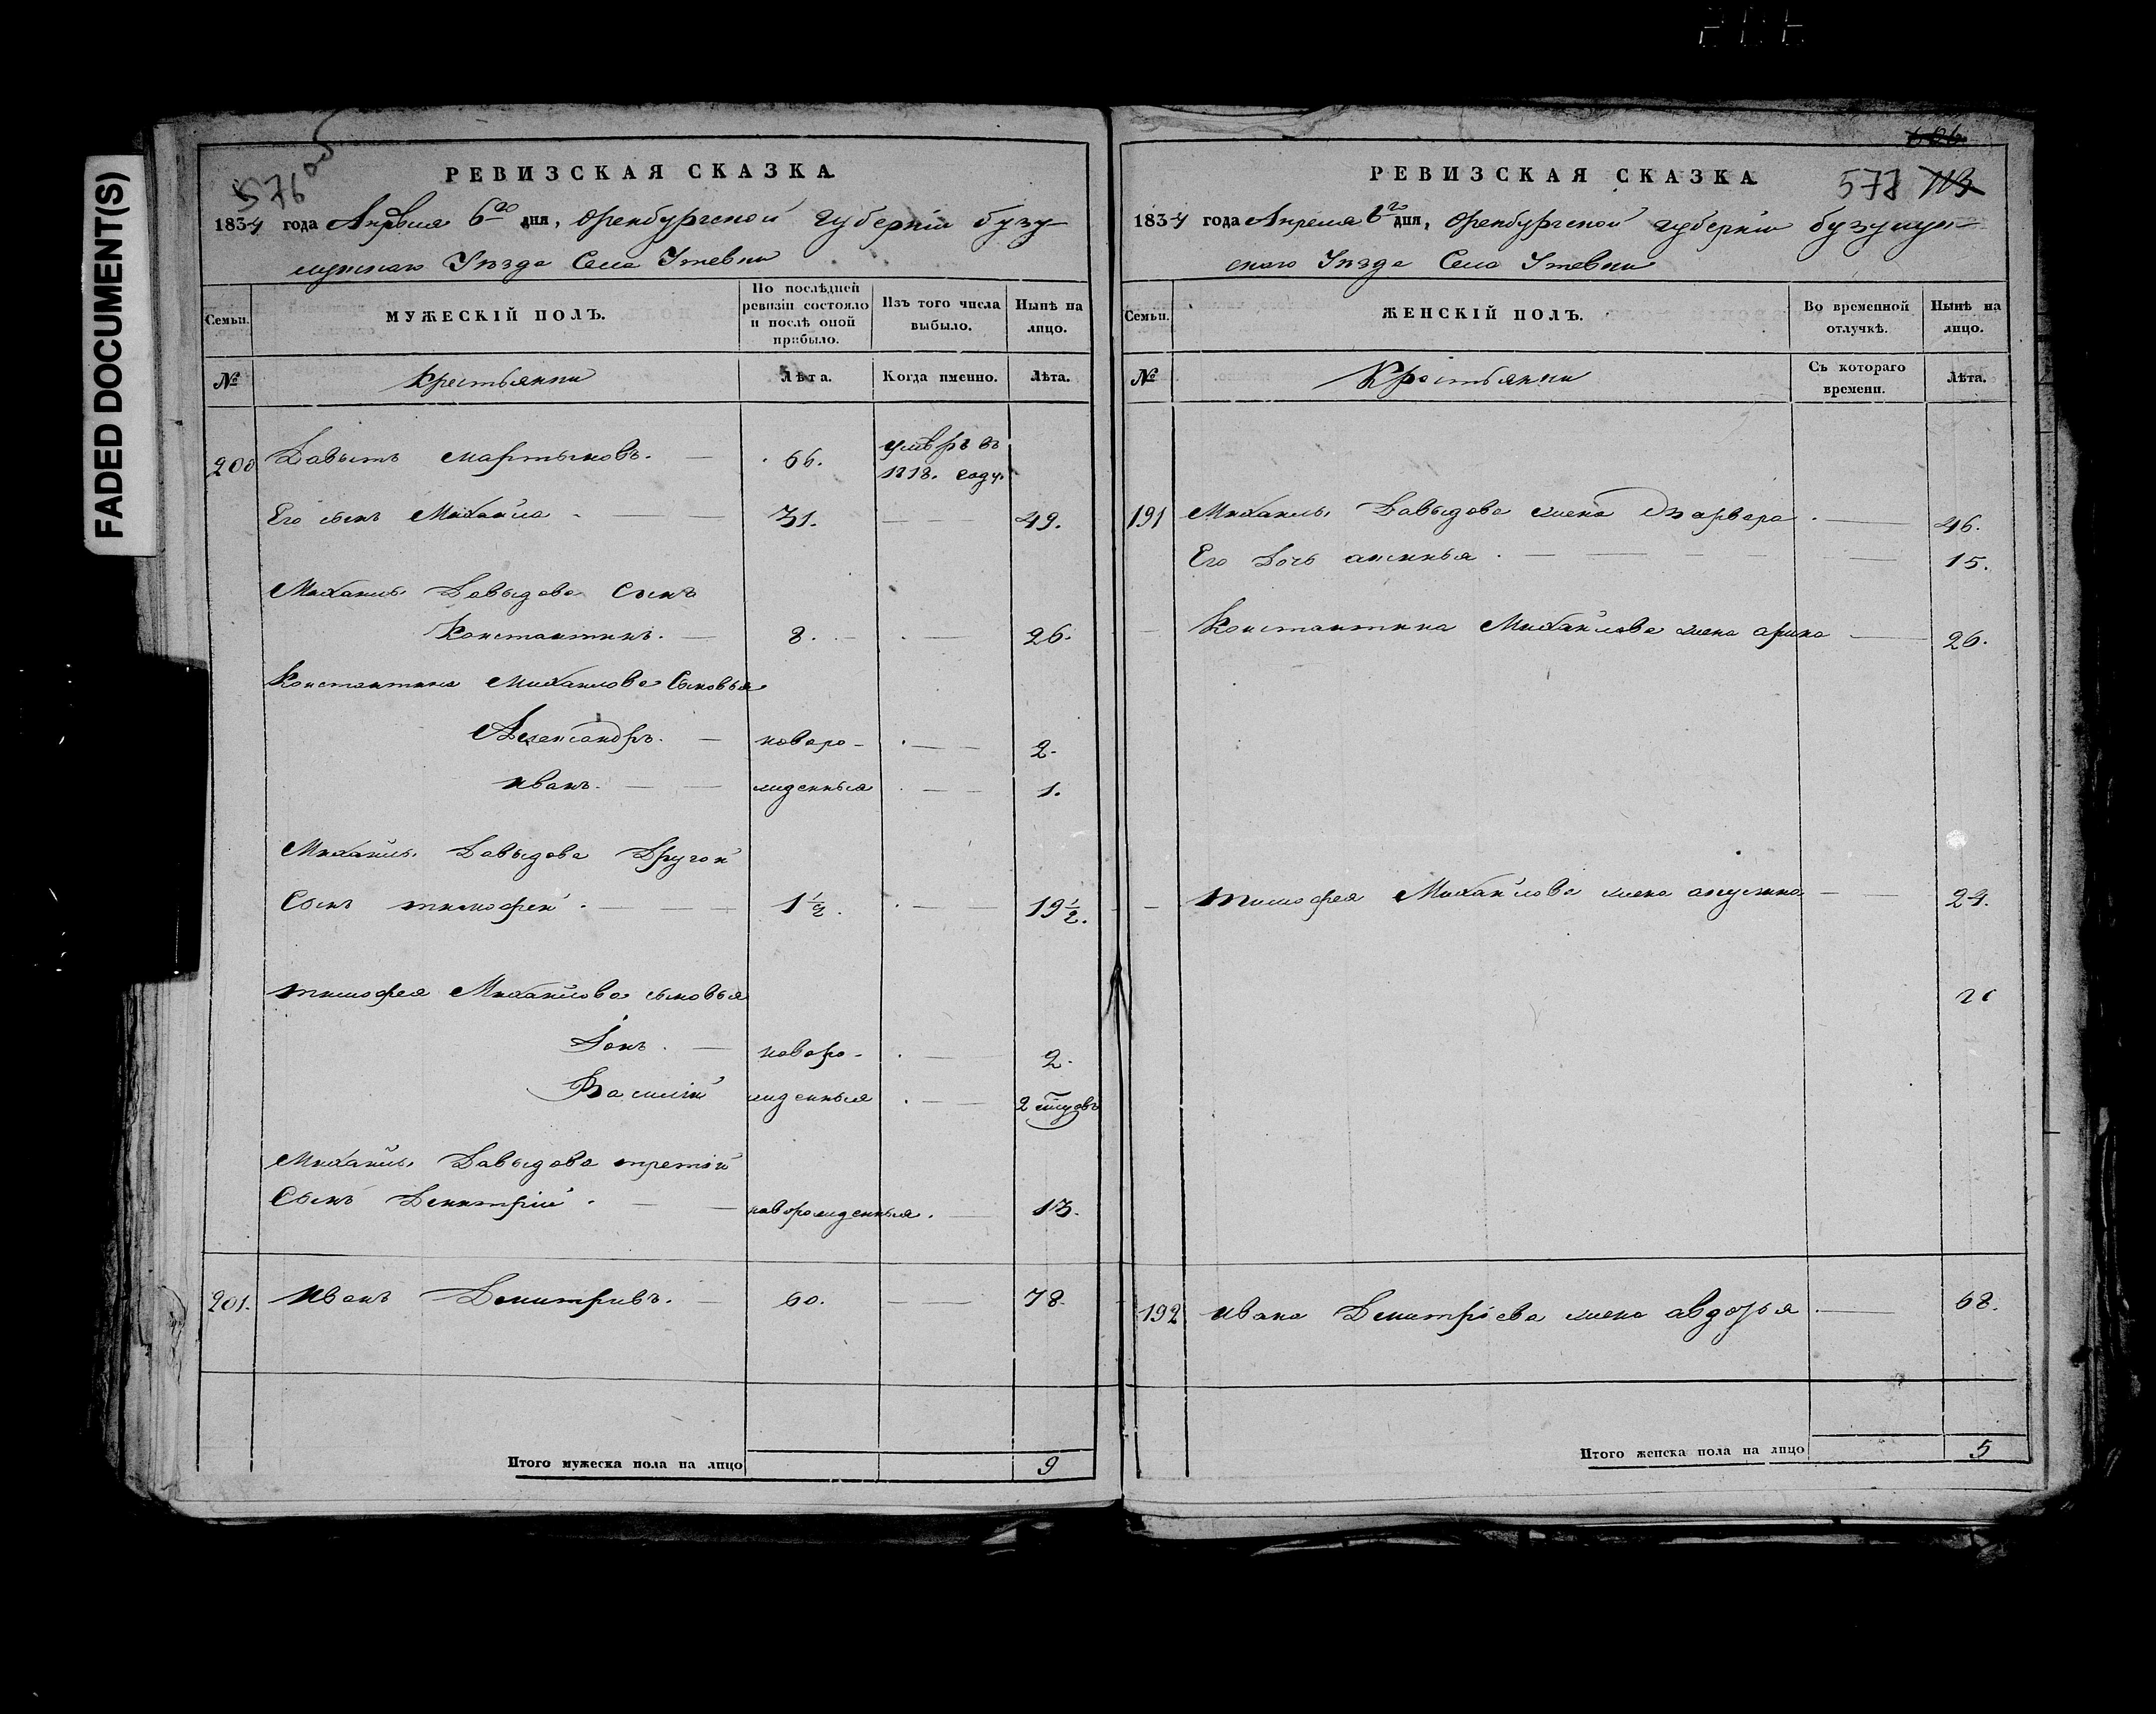 FADED DOCUMENT(S)
576 об
РЕВИЗСКАЯ СКАЗКА.
1834 года Апреля 6го дня, Оренбургской губерніи бузу-
лукскаго Уезда Села Утевки
Семьи.
МУЖЕСКІЙ ПОЛЪ.
По послѣдней ревизіи состояло и послѣ оной прибыло.
Изъ того числа выбыло.
Нынѣ на лицо.
№
Крестьянии
Лѣта.
Когда именно.
Лѣта.
200 Давытъ Мартыновъ. 66. умѣръ въ
1818. году.
Его сынъ Михаила 31. 49.
Михаилы Давыдова Сынъ
Константинъ. 8. 26.
Константина Михаилова Сыновья
Александръ. новоро- 2.
иванъ. жденныя 1.
Михайлы Давыдова Другой
Сынъ тимофей 1½. 19½.
тимофея Михайлова сыновья
новоро- 2.
Василій жденныя 2
Михайлы Давыдова третій
Сынъ Демитрій новорожденныя. 13.
201. иванъ Демитривъ. 60. 78.
Итого мужеска пола на лицо 9
606
РЕВИЗСКАЯ СКАЗКА
577 113
1834 года Апреля 6го дня, Оренбургской губерніи бузулук-
скаго Уезда Села Утевки
Семьи.
ЖЕНСКІЙ ПОЛЪ.
Во временной отлучкѣ.
Нынѣ на лицо.
№
Крестьянки
Съ котораго времени.
Лѣта.
191 Михаилы Давыдова жена Варвара 46.
Его Дочь аксинья 15.
Константина Михайлова жена арина 26.
тимофея Михайлова жена акулина 24.
192 ивана Демитріева жена авдотья 68.
Итого женска пола на лицо 5